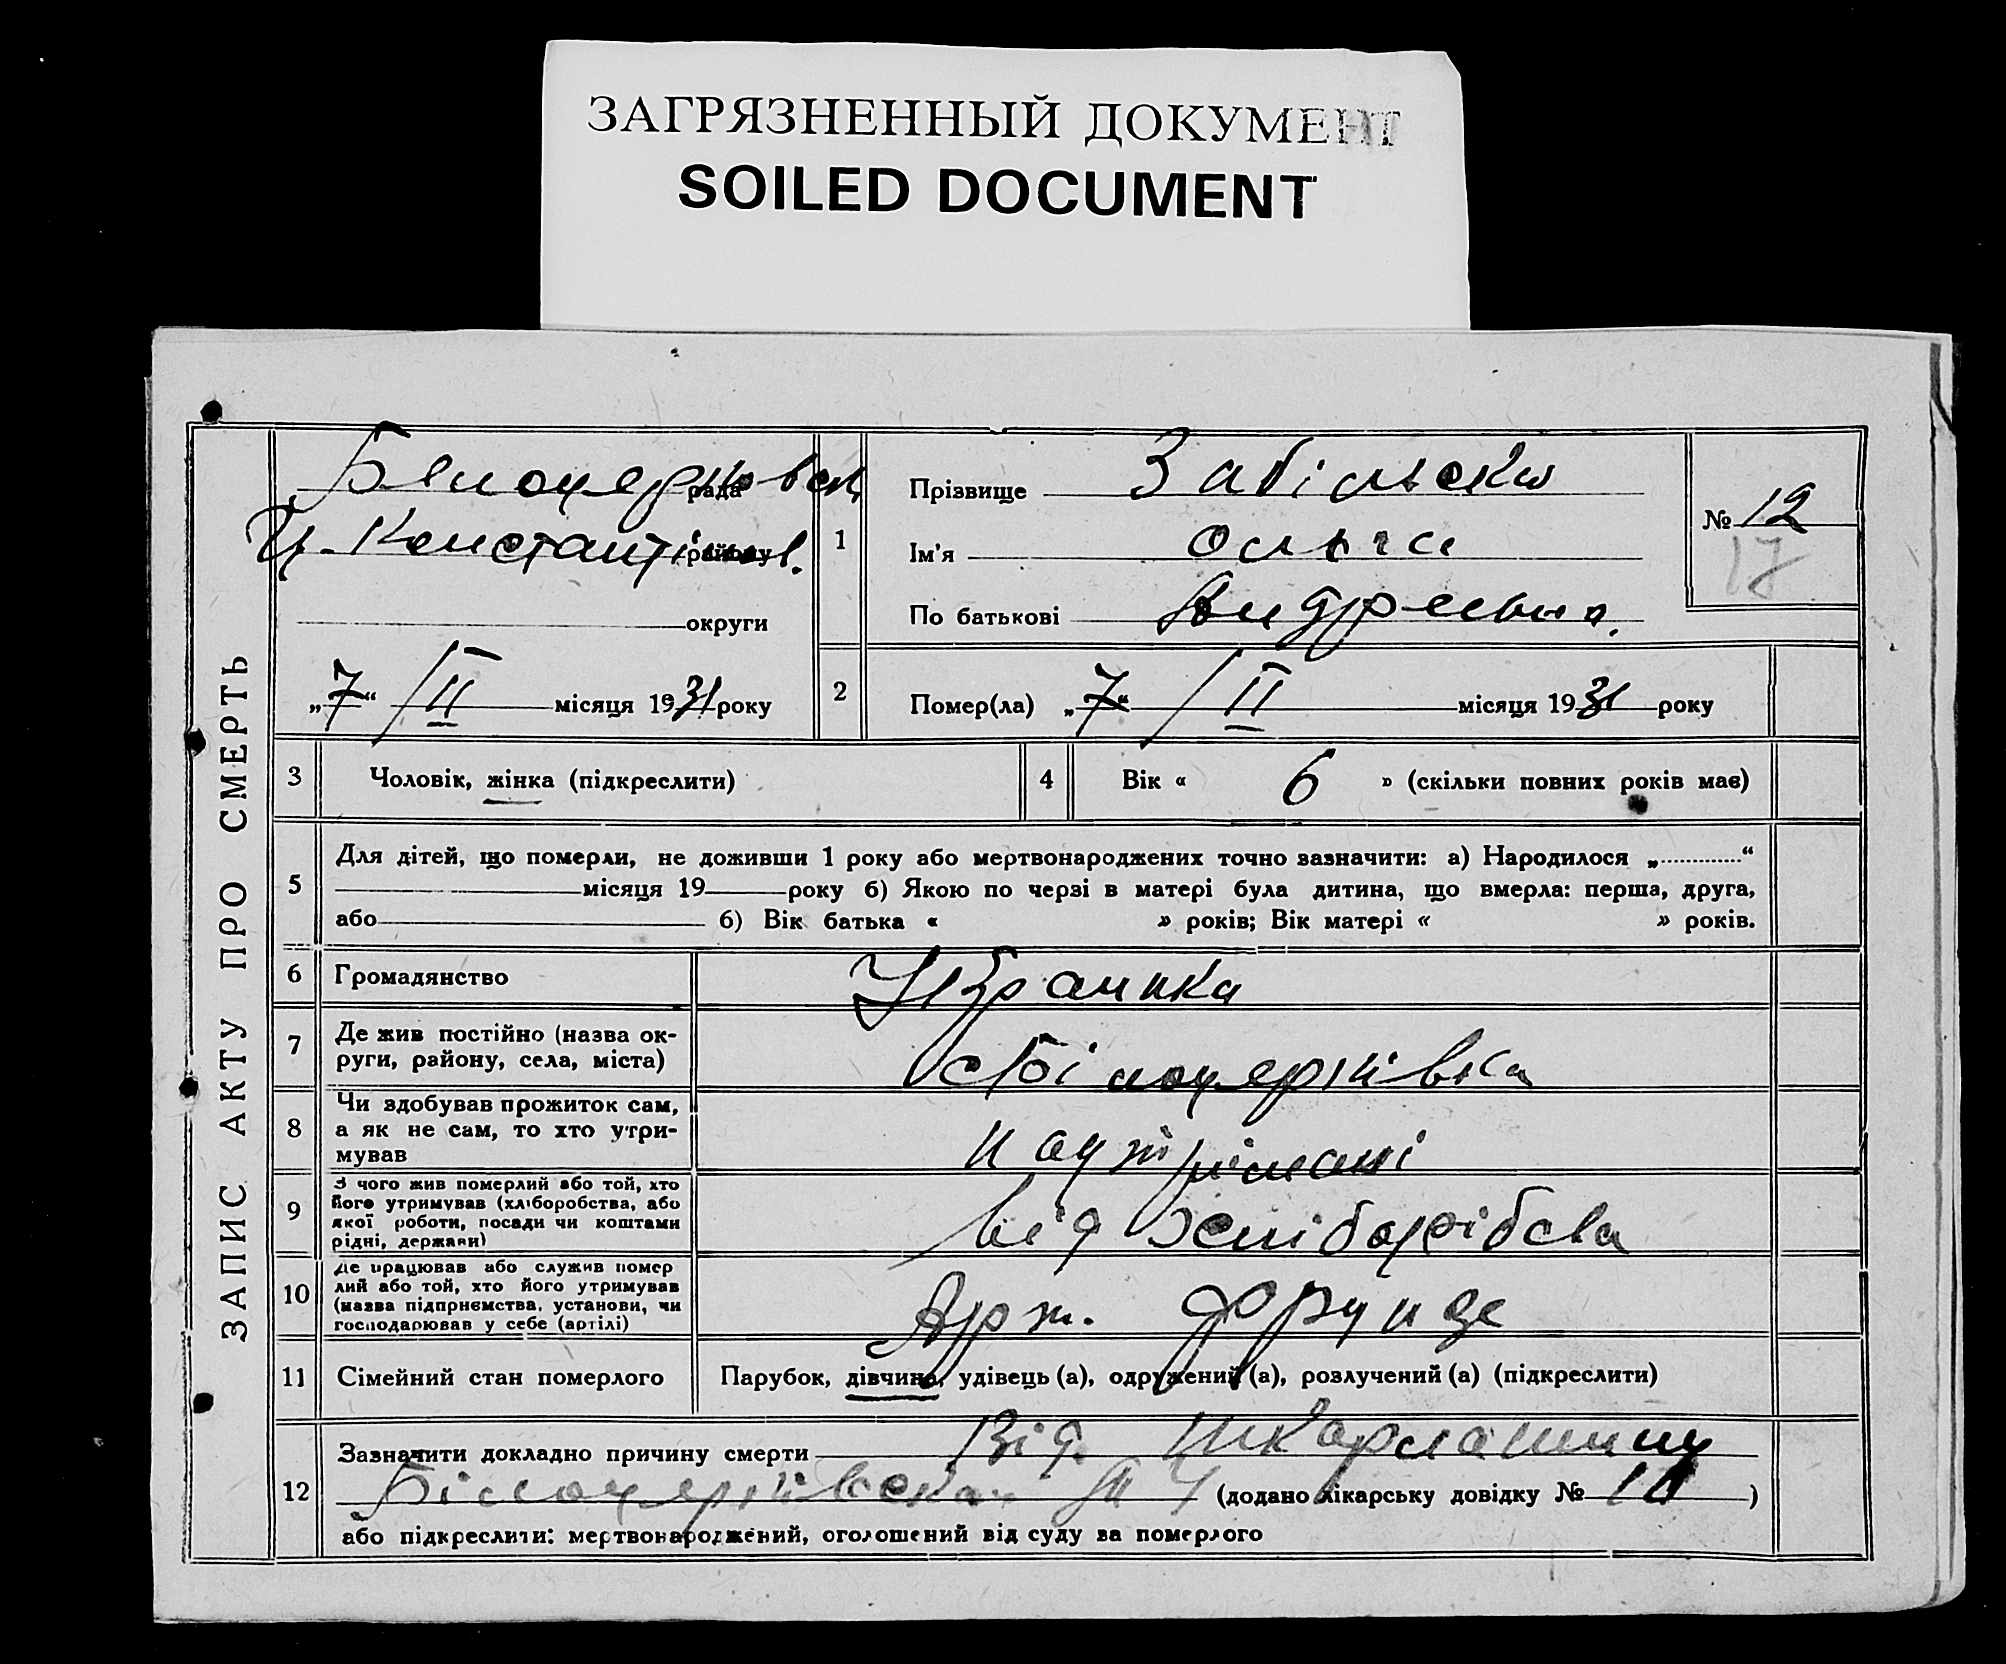 ЗАГРЯЗНЕННЫЙ ДОКУМЕНТ
SOILED DOCUMENT
ЗАПИС АКТУ ПРО СМЕРТЬ
рада
Ц-Константинов. району
округи
„7“ / II місяця 1931 року
1
Прізвище Забільска
Ім'я Ольга
По батькові Андреевна.
№ 12
17
2
Помер(ла) „7“ / II місяця 1931 року
3 Чоловік, жінка (підкреслити)
4 Вік « 6 » (скільки повних років має)
5 Для дітей, що померли, не доживши 1 року або мертвонароджених точно зазначити: а) Народилося „..............“
місяця 19 року б) Якою по черзі в матері була дитина, що вмерла: перша, друга,
або б) Вік батька « » років; Вік матері « » років.
6 Громадянство Українка
7 Де жив постійно (назва ок-
руги, району, села, міста)
Білоцерківка
8 Чи здобував прожиток сам,
а як не сам, то хто утри-
мував
9 З чого жив померлий або той, хто
його утримував (хліборобства, або
якої роботи, посади чи коштами
рідні, держави)
від хліборобства
10 Де працював або служив помер
лий або той, хто його утримував
(назва підприємства, установи, чи
господарював у себе (артілі)
Арт. Фрунзе
11 Сімейний стан померлого Парубок, дівчина, удівець (а), одружений (а), розлучений (а) (підкреслити)
12 Зазначити докладно причину смерти Від шкарлатини
Білоцерківська (додано лікарську довідку № 10 )
або підкреслити: мертвонароджений, оголошений від суду за померлого